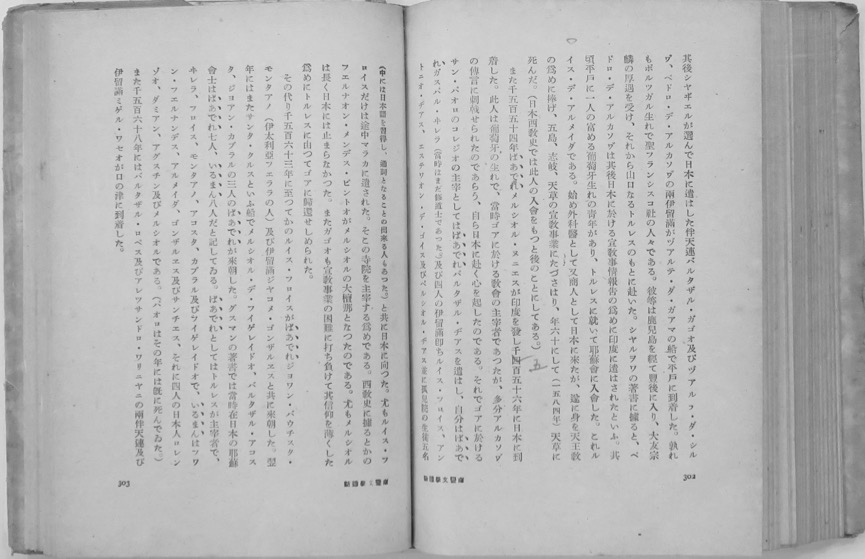 其後シャギエルが選んで日本に遣はした伴天連バルタザル・ガゴオ及びヅアルフ・ダ・シル
ヷ、ペドロ・デ・アルカソヷの兩伊留滿がヅアルテ・ダ・ガアマの船で平戸に到着した。孰れ
もポルツガル生れで聖フランシスコ社の人々である。彼等は鹿兒島を經て豐後に入り、大友宗
麟の厚遇を受け、それから山口なるトルレスのもとに赴いた。シヤルヲワの著書に據ると、ペ
ドロ・デ・アルカソヷは其後日本に於ける宣教事情報告の爲めに印度に遣はされたといふ。其
頃平戸に一人の富める葡萄牙生れの青年があり、トルレスに就いて耶蘇會に入會した。これル
イス・デ・アルメイダである。始め外科醫として又商人として日本に來たが、遂に身を天主教
の爲めに捧げ、五島、志岐、天草の宣教事業にたづさはり、年六十にして（一五八四年）天草に
死んだ。（日本西教史では此人の入會をもつと後のことにしてある。）
また千五百五十四年ばあでれメルシオル・ヌニエスが印度を發し千四百五十六年に日本に到
五
着した。此人は葡萄牙の生れで、當時ゴアに於ける教會の主宰者であつたが、多分アルカソヷ
の傳言に刺戟せられたのであらう、自ら日本に赴く心を起したのである。それでゴアに於ける
サン・パオロのコレジオの主宰としてはばあでれバルタザル・ヂアスを遣はし、自分はばあで
れガスパル・ヰレラ（當時はまだ修道士であつた。）及び四人の伊留滿即ちルイス・フロイス、アン
トニオ・ヂアス、エステリオン・デ・ゴイス及びベルシオル・ヂアス並に孤兒院の生徒五名
302
（中には日本語を習得し、通詞となることの出來る人もあつた。）と共に日本に向つた。尤もルイス・フ
ロイスだけは途中マラカに遣された。そこの寺院を主宰する爲めである。西教史に據るとかの
フエルナオン・メンデス・ピントオがメルシオルの大檀那となつたのである。尤もメルシオル
は長く日本には止まらなかつた。またガゴオも宣教事業の困難に打ち負けて其信仰を薄くした
爲めにトルレスに由つてゴアに歸還せしめられた。
その代り千五百六十三年に至つてかのルイス・フロイスがばあでれジヨワン・バウチスタ・
モンタアノ（伊太利亞フエララの人）及び伊留滿ジヤコメ・ゴンザルエスと共に來朝した。翌
年にはまたサンタ・クルスといふ船でメルシオル・デ・フイゲレイドオ、バルタザル・アコス
タ、ジヨアン・カブラルの三人のばあでれが來朝した。グスマンの著書では當時在日本の耶蘇
會士はばあでれ七人、いるまん八人だと記してゐる。ばあでれとしてはトルレスが主宰者で、
ヰレラ、フロイス、モンタアノ、アコスタ、カブラル及びフイゲレイドオで、いるまんはソワ
ン・フエルナンデス、アルメイダ、ゴンザルエス及びサンチエス、それに四人の日本人ロレン
ゾオ、ダミアン、アグスチン及びメルシオルである。（パオロはその年には既に死んでゐた。）
また千五百六十八年にはバルタザル・ロペス及びアレツサンドロ・ワリニヤニの兩伴天連及び
伊留滿ミゲル・ワセオが口の津に到着した。
303